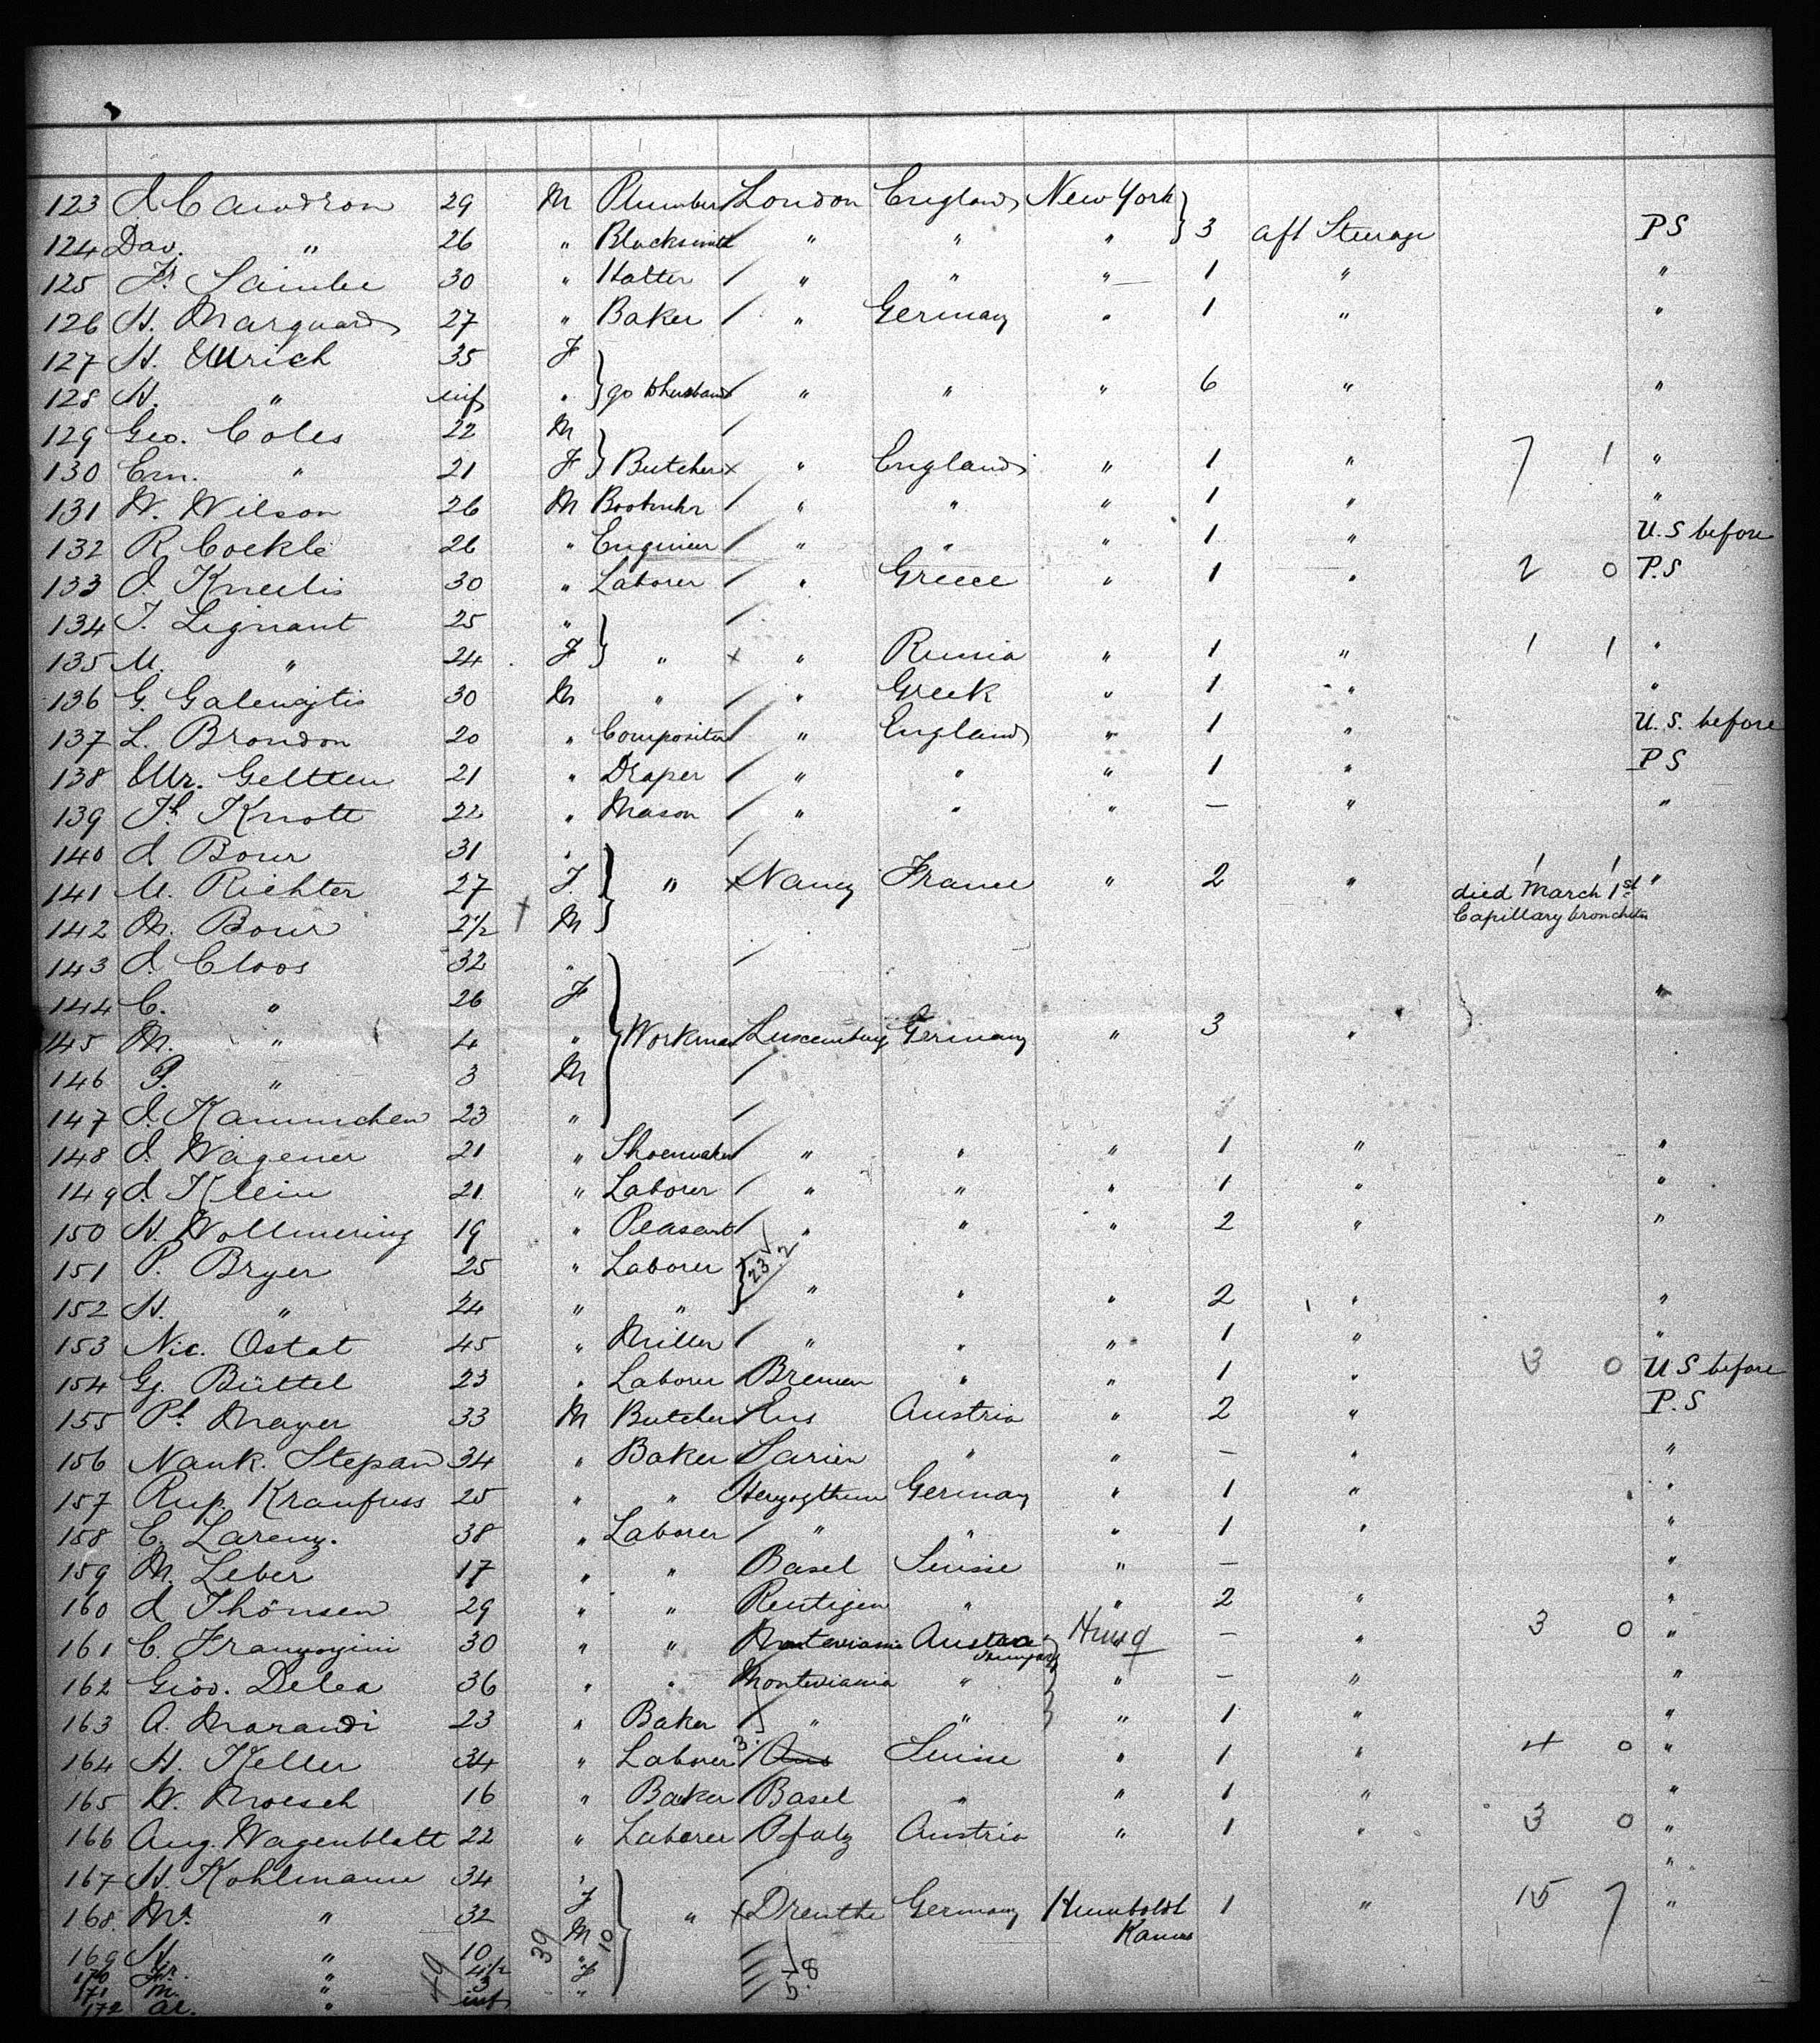 123 J Cawdron 29 M Plumber London England New York
124 Dav. " 26 " Blacksmith " " " 3 aft Steerage PS
125 30 " Hatter " " " 1 " "
126 H. Marquard 27 " Baker " Germany " 1 " "
127 H. Ullrich 35 F
128 H. " inf " go to husband " " " 6 " "
129 Geo. Coles 22 M
130 Em. " 21 F Butcher " England " 1 " 7 1 "
131 W. Wilson 26 M " " " 1 " "
132 R. Cockle 26 " Engineer " " " 1 " U.S before
133 J. 30 " Laborer " Greece " 1 " 2 0 P.S
134 T. Lignant 25 "
135 M. " 24 F " " Russia " 1 " 1 1 "
136 G. 30 M " " Greek " 1 " "
137 L. Brondon 20 " Compositor " England " 1 " U.S. before
138 21 " Draper " " " 1 " PS
139 Knott 22 " Mason " " " — " "
140 J Bour 31 "
141 M. Richter 27 F. " Nancy France " 2 " 1 1 "
died March 1st
142 M. Bour 2½ M Capillary bronchitis
143 J. Cloos 32 "
144 C. " 26 F "
145 M. " 4 " Workman Luxemburg Germany " 3 "
146 P. " 3 M
147 J. Kammchen 23 "
148 J. Wagener 21 " Shoemaker " " " 1 " "
149 J. Klein 21 " Laborer " " " 1 " "
150 H. Wollmering 19 " Peasant " " " 2 " "
151 P. Bryer 25 " Laborer 23.2
152 H. " 24 " " " " " 2 " "
153 Nic. Ostat 45 " Miller " " " 1 " "
154 Gg. Büttel 23 " Laborer Bremen " " 1 " 3 0 U S before
155 Ph. Mayer 33 M Butcher Austria " 2 " P.S
156 Nauk. Stepan 34 " Baker " " — " "
157 Rup. Kraufuss 25 " " Herzogthum Germany " 1 " "
158 C. Larenz. 38 " Laborer " " " 1 " "
159 M. Leber 17 " " Basel Suisse " — "
160 J Thönsen 29 " " " " 2 " "
161 C. 30 " " Hung — " 3 0 "
162 Giov. Delea 36 " " " " — " "
163 A. Marandi 23 " Baker " " " 1 " "
164 H. Keller 34 " Laborer Suisse " 1 " 4 0 "
165 W. Moesch 16 " Baker Basel " " 1 " "
166 Aug. Wagenblatt 22 " Laborer Pfalz Austria " 1 " 3 0 "
167 H. Kohlmann 34 " "
168 " 32 F " Drenthe Germany Humboldt 1 " 15 7 "
Kansas
169 H. " 10 M
170 Fr. " 4½ "
171 M. " 3 F
172 Al. " inf "
49 39 10 5.8